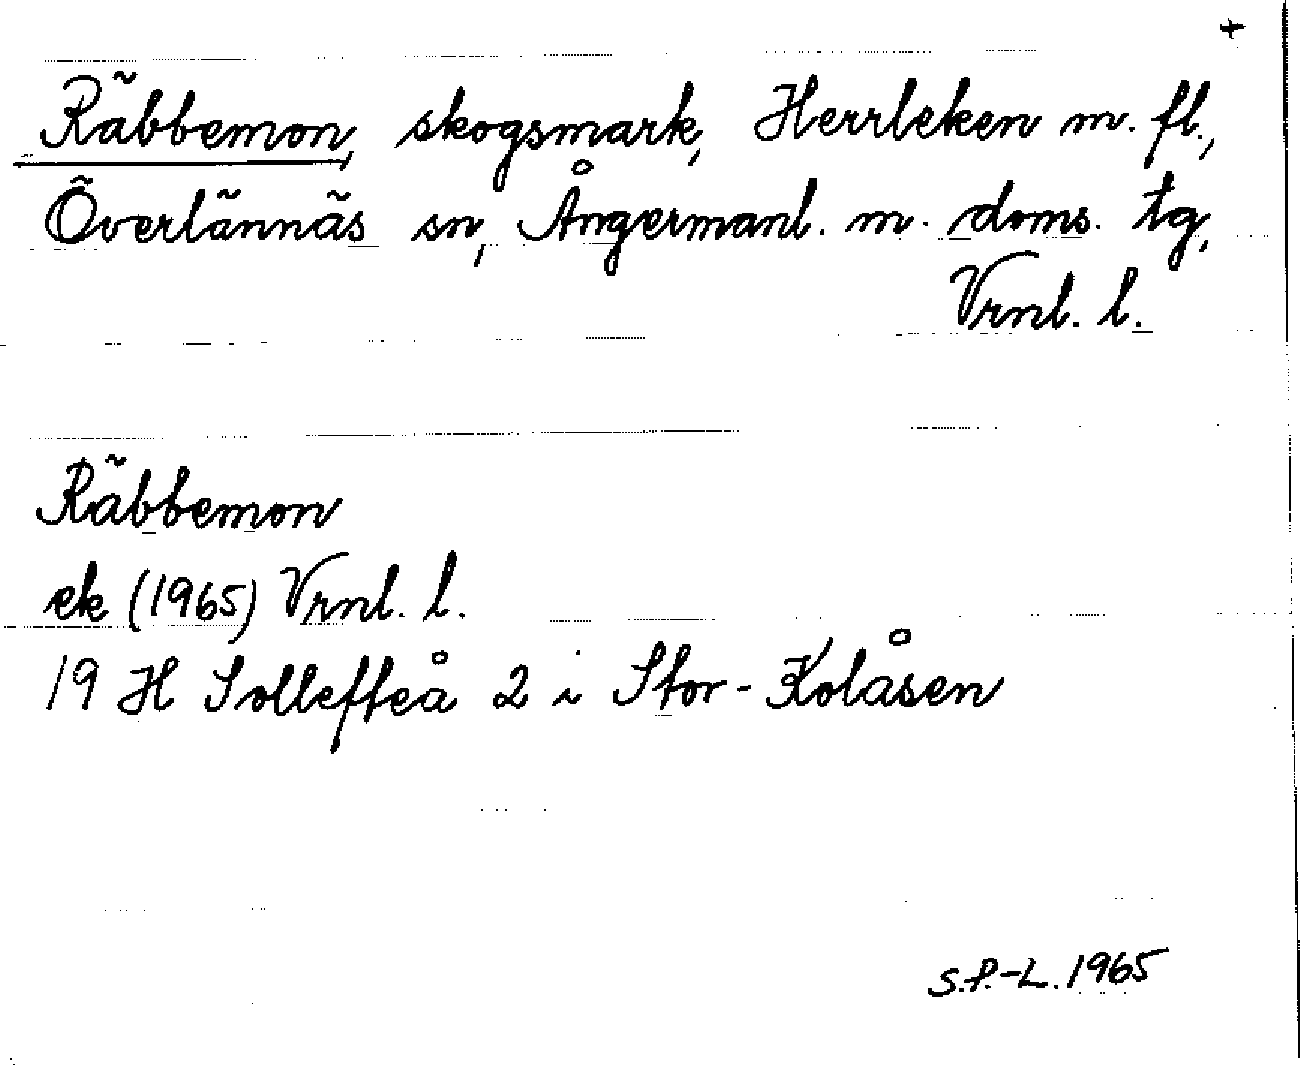 +
Räbbemon, skogsmark, Herrleken m. fl.,
Överlännäs sn, Ångermanl. m. doms. tg,
Vrnl. l.
Räbbemon
ek (1965) Vrnl. l.
19 H Sollefteå 2 i Stor-Kolåsen
S.P.-L. 1965